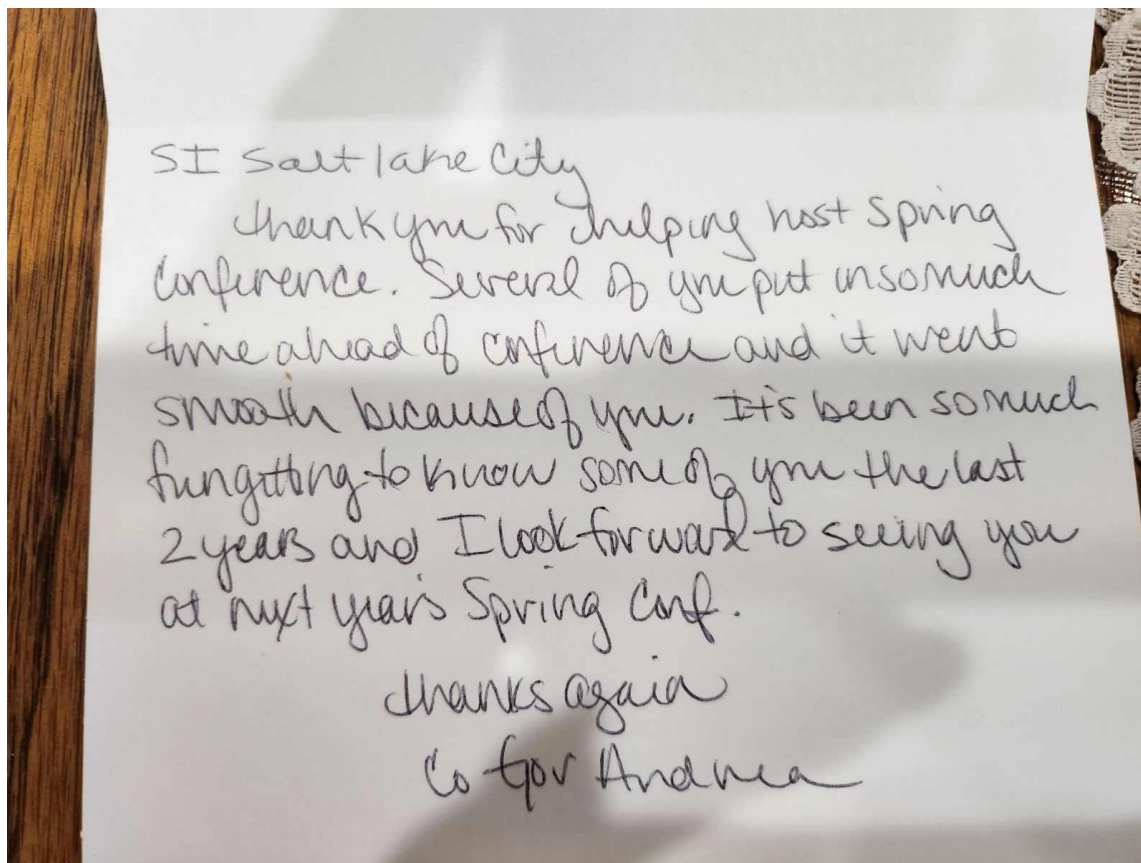 SI Salt lake City
thank you for helping host Spring
Conference. Several of you put in so much
time ahead of conference and it went
smooth because of you. It's been so much
fun getting to know some of you the last
2 years and I look forward to seeing you
at next year's Spring Conf.
thanks again
Co Gov Andrea